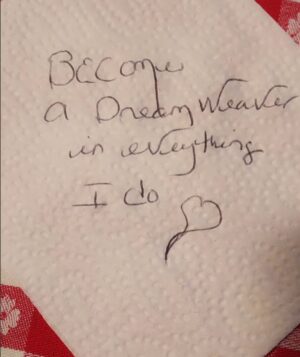 Become
a DreamWeaver
in everything
I do